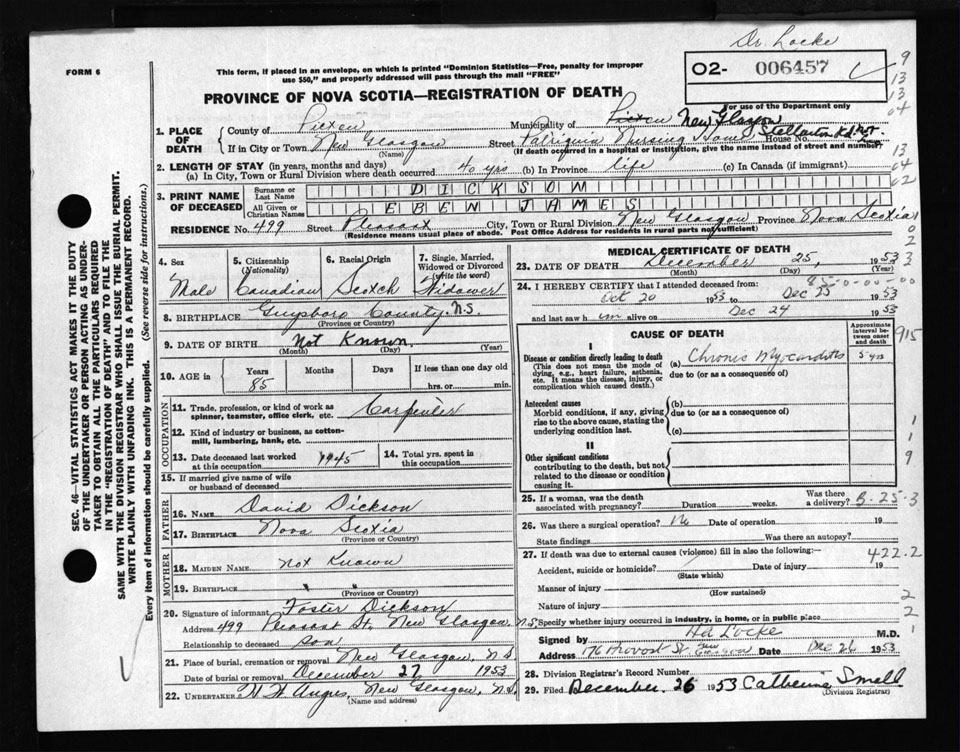 Dr. Locke
FORM 6
This form, if placed in an envelope, on which is printed "Dominion Statistics—Free, penalty for improper
use $50," and properly addressed will pass through the mail "FREE"
O2- 006457
PROVINCE OF NOVA SCOTIA—REGISTRATION OF DEATH
For use of the Department only
1. PLACE OF DEATH
County of Pictou Municipality of Pictou New Glasgow
If in City or Town New Glasgow (Name) Street Nursing Home Stellarton Rd. House No.
(If death occurred in a hospital or institution, give name instead of street and number)
2. LENGTH OF STAY (in years, months and days)
(a) In City, Town or Rural Division where death occurred 40 yrs (b) In Province life (c) In Canada (if immigrant)
3. PRINT NAME OF DECEASED
Surname or Last Name DICKSON
All Given or Christian Names EBEN JAMES
RESIDENCE No. 499 Street Pleasant City, Town or Rural Division New Glasgow Province Nova Scotia
(Residence means usual place of abode. Post Office Address for residents in rural parts not sufficient)
4. Sex Male
5. Citizenship (Nationality) Canadian
6. Racial Origin Scotch
7. Single, Married, Widowed or Divorced (write the word) Widower
8. BIRTHPLACE Guysboro County N.S.
(Province or County)
9. DATE OF BIRTH Not Known
(Month) (Day) (Year)
10. AGE in Years 85 Months Days If less than one day old
hrs. or min.
OCCUPATION
11. Trade, profession, or kind of work as spinner, teamster, office clerk, etc. Carpenter
12. Kind of industry or business, as cotton-mill, lumbering, bank, etc.
13. Date deceased last worked at this occupation 1945
14. Total yrs. spent in this occupation
15. If married give name of wife or husband of deceased
FATHER
16. Name David Dickson
17. Birthplace Nova Scotia
(Province or Country)
MOTHER
18. MAIDEN NAME Not Known
19. BIRTHPLACE " "
(Province or Country)
20. Signature of informant Foster Dickson
Address 499 Pleasant St., New Glasgow, N.S.
Relationship to deceased Son
21. Place of burial, cremation or removal New Glasgow, N.S.
Date of burial or removal December 27 1953
22. UNDERTAKER Angus, New Glasgow, N.S.
(Name and address)
MEDICAL CERTIFICATE OF DEATH
23. DATE OF DEATH December 25, 1953
(Month) (Day) (Year)
24. I HEREBY CERTIFY that I attended deceased from:
Oct 20 1953 to Dec 25 1953
and last saw him alive on Dec 24 1953
CAUSE OF DEATH
Approximate interval between onset and death
I
Disease or condition directly leading to death
(This does not mean the mode of dying, e.g., heart failure, asthenia, etc. It means the disease, injury, or complication which caused death.)
(a) Chronic Myocarditis 5 yrs
due to (or as a consequence of)
Antecedent causes
Morbid conditions, if any, giving rise to the above cause, stating the underlying condition last.
(b)
due to (or as a consequence of)
(c)
II
Other significant conditions
contributing to the death, but not related to the disease or condition causing it.
25. If a woman, was the death associated with pregnancy? Duration weeks. Was there a delivery? B-25-3
26. Was there a surgical operation? No Date of operation 19
State findings Was there an autopsy?
27. If death was due to external causes (violence) fill in also the following:—
422.2
Accident, suicide or homicide? Date of injury 19
(State which)
Manner of injury
(How sustained)
Nature of injury
Specify whether injury occurred in industry, in home, or in public place
Signed by Locke M.D.
Address 176 Provost St. New Glasgow Date Dec 26 1953
28. Division Registrar's Record Number
29. Filed December 26 1953 Catherine Small
(Division Registrar)
SEC. 46—VITAL STATISTICS ACT MAKES IT THE DUTY
OF THE UNDERTAKER OR PERSON ACTING AS UNDER-
TAKER TO OBTAIN ALL THE PARTICULARS REQUIRED
IN THE "REGISTRATION OF DEATH" AND TO FILE THE
SAME WITH THE DIVISION REGISTRAR WHO SHALL ISSUE THE BURIAL PERMIT.
WRITE PLAINLY WITH UNFADING INK. THIS IS A PERMANENT RECORD.
Every item of information should be carefully supplied. (See reverse side for instructions.)
9
13
13
04
13
04
02
915
1
1
9
2
2
1